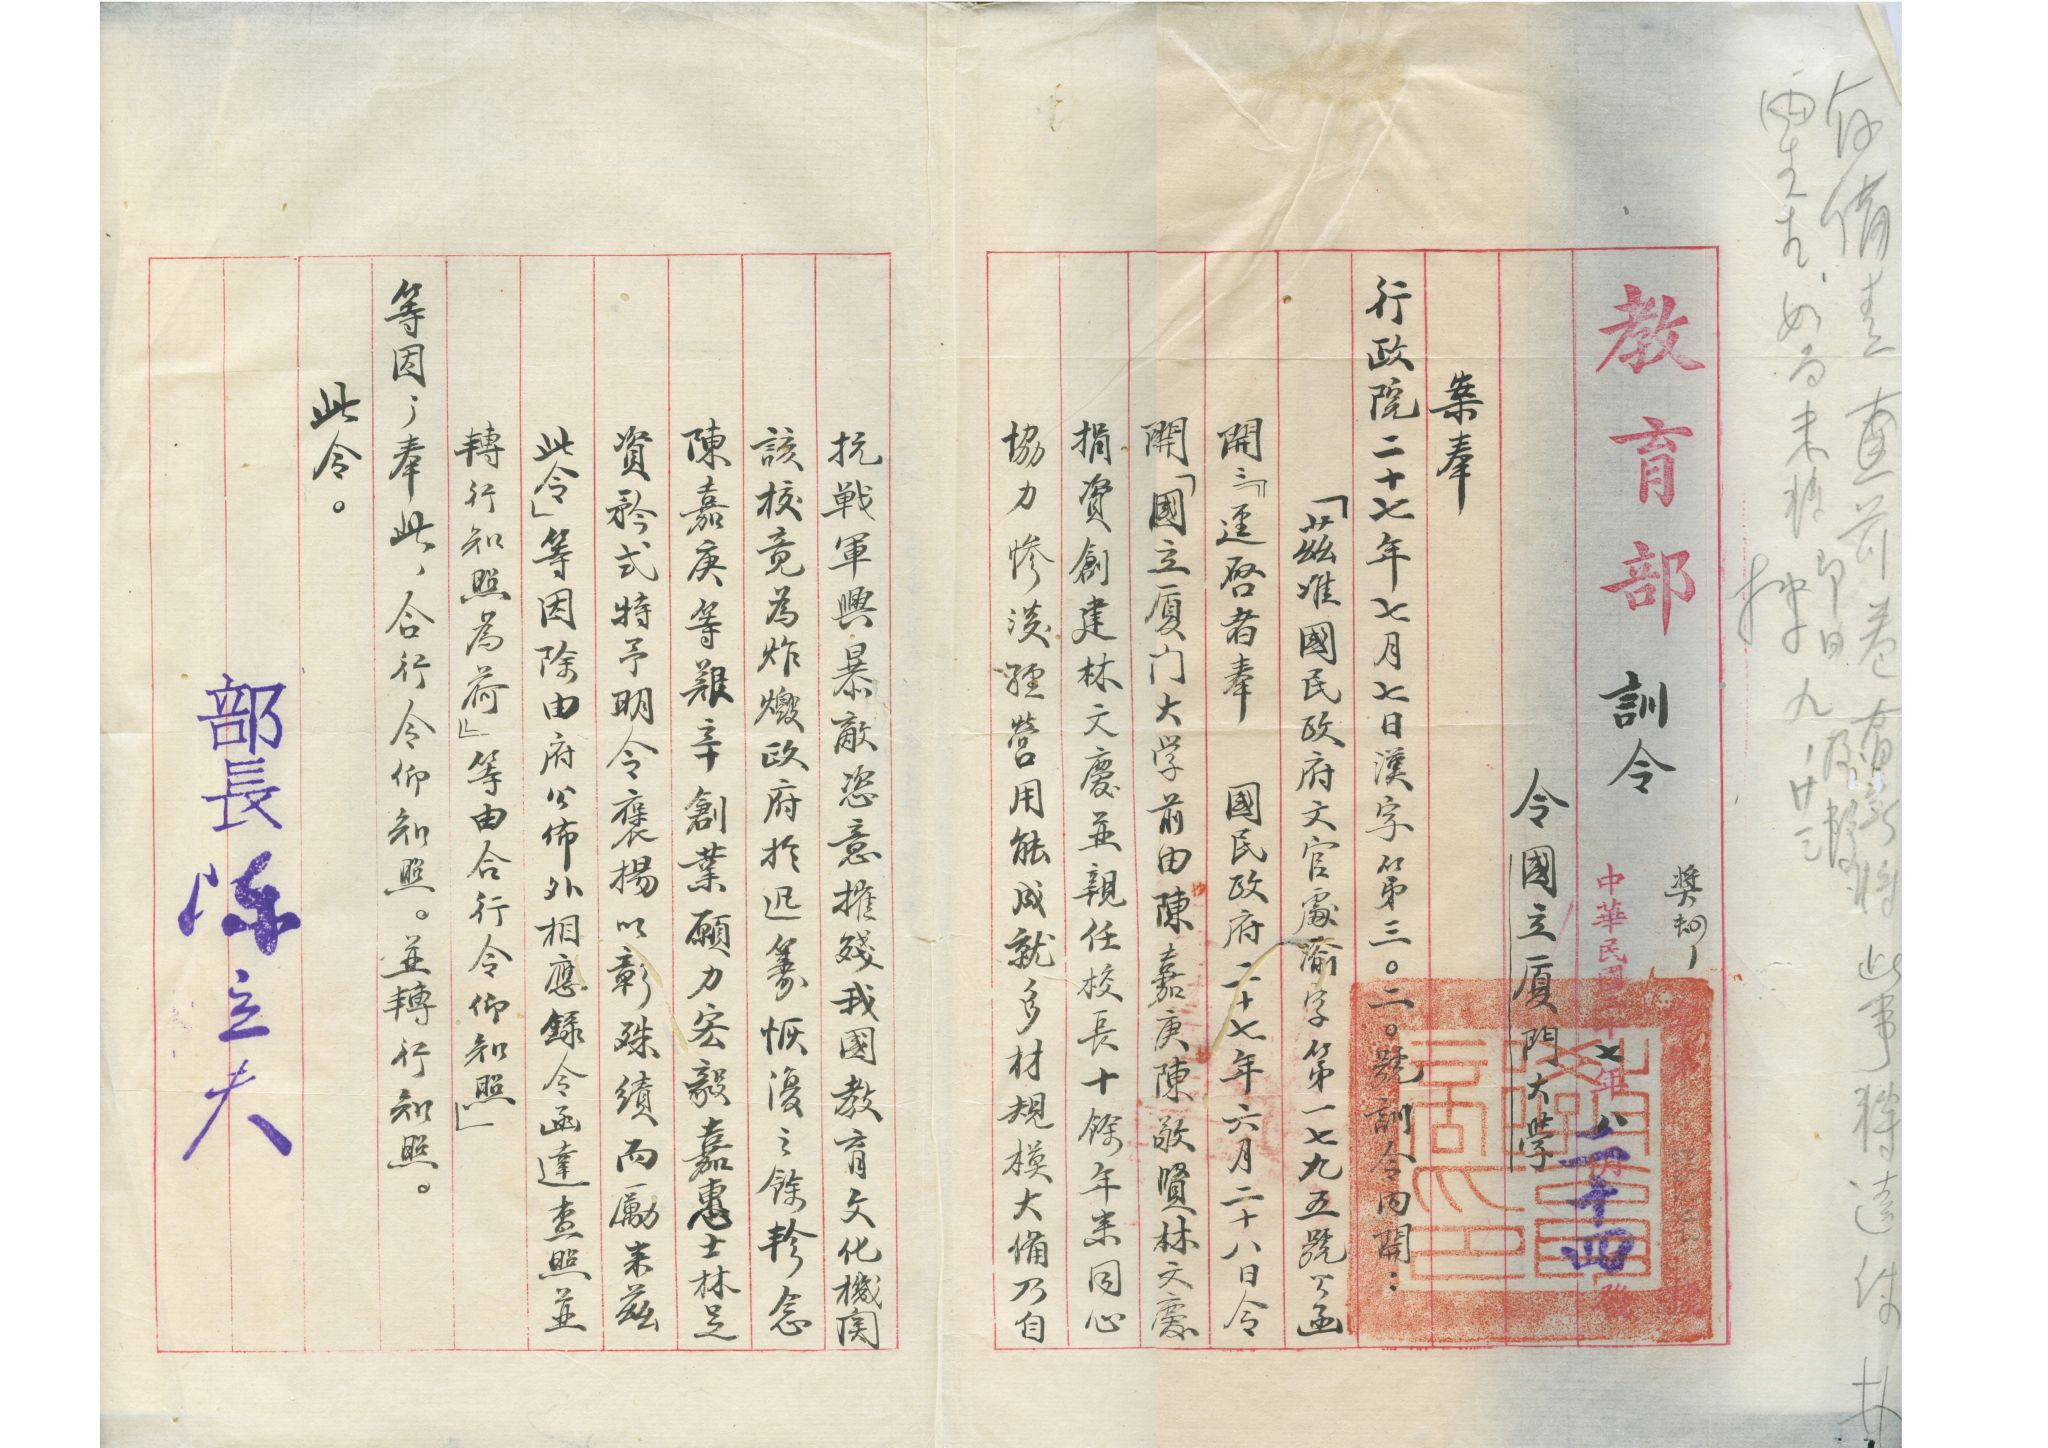 教育部訓令
中華民國二十七年八月二十四
令國立厦門大學
案奉
行政院二十七年七月七日漢字第三〇二〇號訓令内開：
「茲准國民政府文官處渝字第一七九五號公函
開：『逕啓者奉　國民政府二十七年六月二十八日令
開「國立厦门大学前由陳嘉庚陳敬賢林文慶
捐資創建林文慶並親任校長十餘年来同心
協力惨淡經營用能成就多材規模大備乃自
抗戰軍興暴敵恣意摧殘我國教育文化機関
該校竟為炸燬政府於迅籌恢復之餘軫念
陳嘉庚等艱辛創業願力宏毅嘉惠士林足
資矜式特予明令褒揚以彰殊績而勵来茲
此令」等因除由府公佈外相應錄令函達查照並
轉行知照為荷』等由合行令仰知照」
等因，奉此，合行令仰知照。並轉行知照。
此令。
部長陳立夫